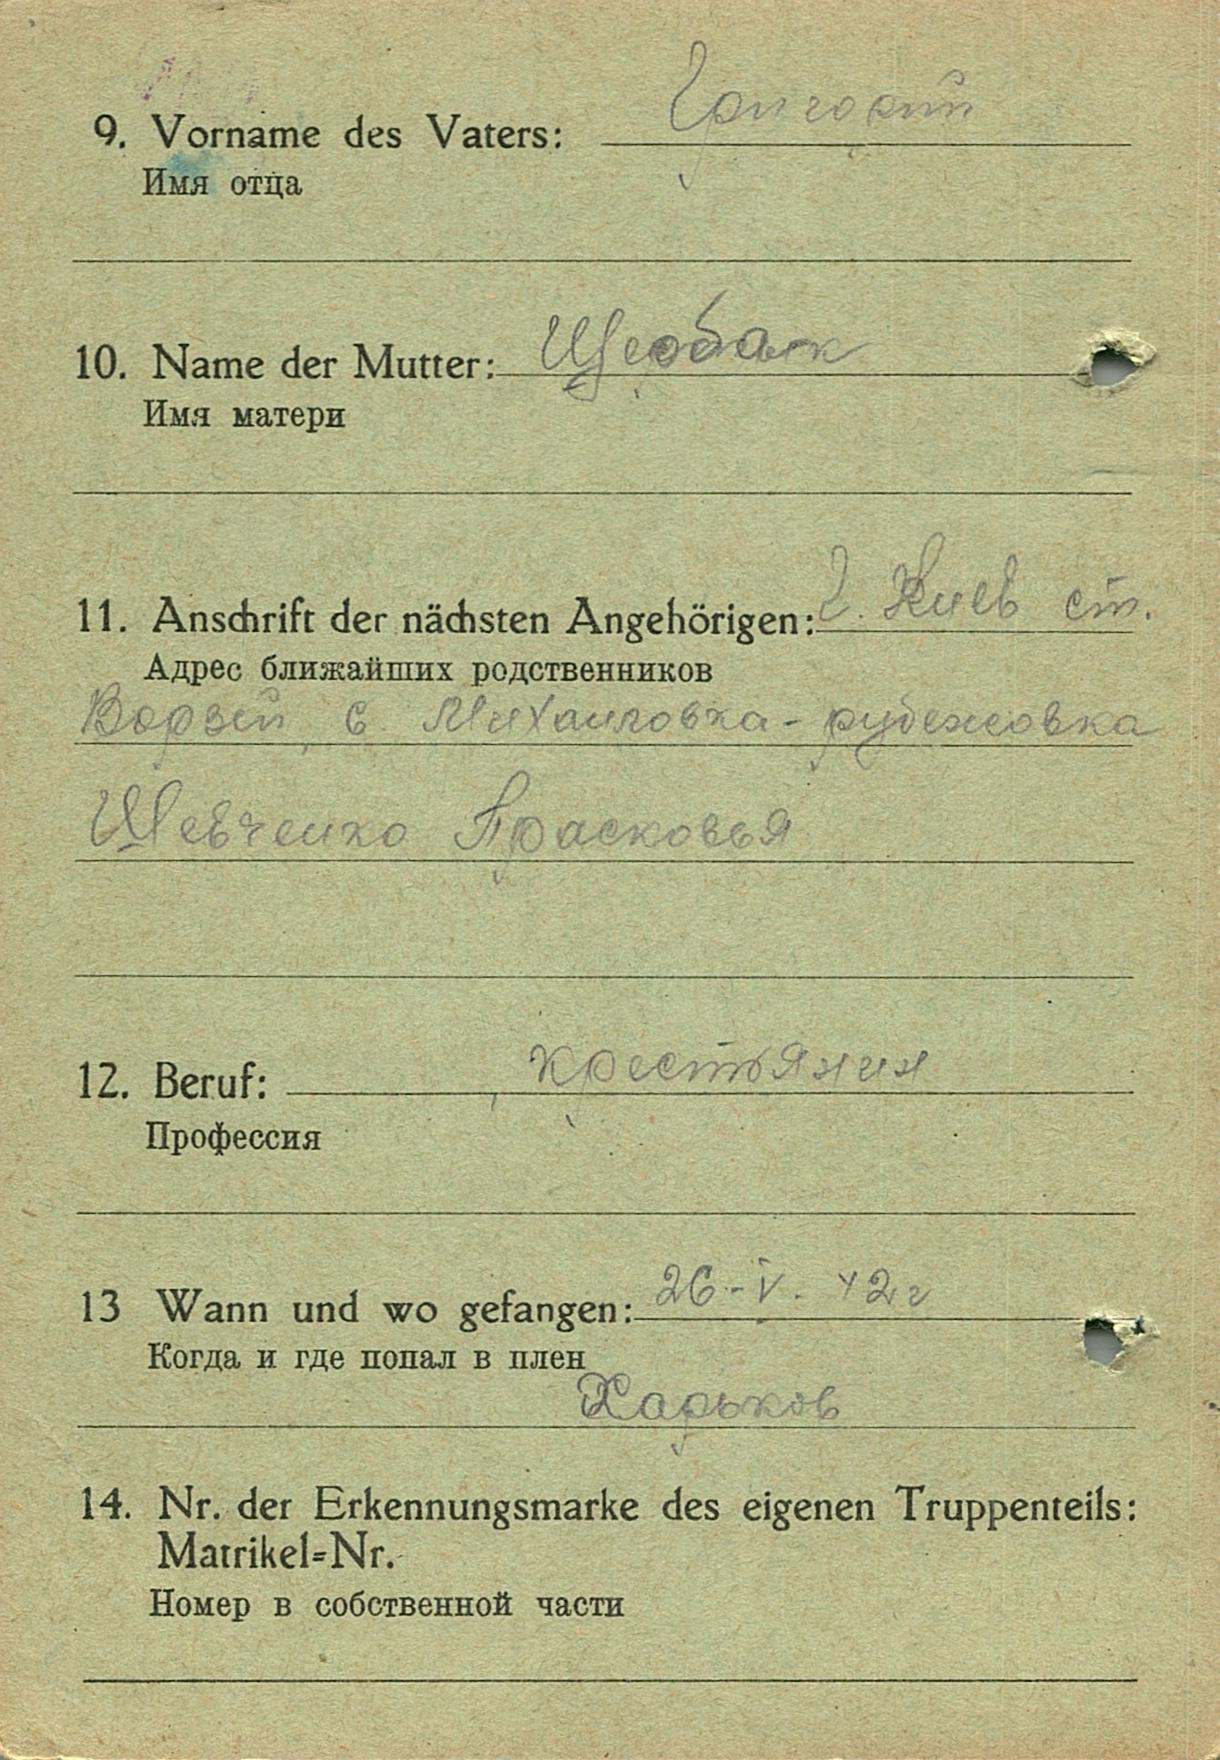 Григорий
9. Vorname des Vaters:
Имя отца
Щербак
10. Name der Mutter:
Имя матери
11. Anschrift der nächsten Angehörigen: г. Киев ст.
Адрес ближайших родственников
Ворзель, с. Михаиловка - рубежовка
Шевченко Прасковья
12. Beruf: крестьянин
Профессия
13 Wann und wo gefangen: 26-V-42г
Когда и где попал в плен
Харьков
14. Nr. der Erkennungsmarke des eigenen Truppenteils:
Matrikel=Nr.
Номер в собственной части